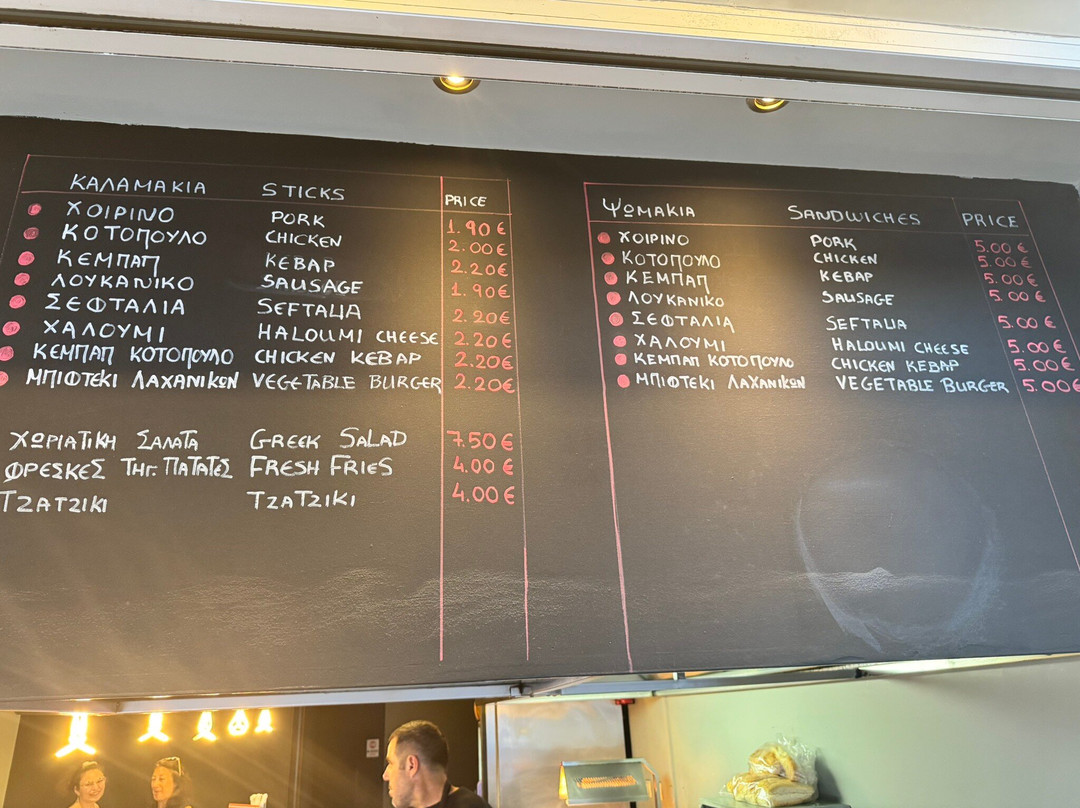 ΚΑΛΑΜΑΚΙΑ STICKS PRICE
ΧΟΙΡΙΝΟ PORK 1.90€
ΚΟΤΟΠΟΥΛΟ CHICKEN 2.00€
ΚΕΜΠΑΠ KEBAP 2.20€
ΛΟΥΚΑΝΙΚΟ SAUSAGE 1.90€
ΣΕΦΤΑΛΙΑ SEFTALIA 2.20€
ΧΑΛΟΥΜΙ HALOUMI CHEESE 2.20€
ΚΕΜΠΑΠ ΚΟΤΟΠΟΥΛΟ CHICKEN KEBAP 2.20€
ΜΠΙΦΤΕΚΙ ΛΑΧΑΝΙΚΩΝ VEGETABLE BURGER 2.20€
ΧΩΡΙΑΤΙΚΗ ΣΑΛΑΤΑ GREEK SALAD 7.50€
ΦΡΕΣΚΕΣ ΤΗΓ. ΠΑΤΑΤΕΣ FRESH FRIES 4.00€
TZATZIKI TZATZIKI 4.00€
ΨΩΜΑΚΙΑ SANDWICHES PRICE
ΧΟΙΡΙΝΟ PORK 5.00€
ΚΟΤΟΠΟΥΛΟ CHICKEN 5.00€
ΚΕΜΠΑΠ KEBAP 5.00€
ΛΟΥΚΑΝΙΚΟ SAUSAGE 5.00€
ΣΕΦΤΑΛΙΑ SEFTALIA 5.00€
ΧΑΛΟΥΜΙ HALOUMI CHEESE 5.00€
ΚΕΜΠΑΠ ΚΟΤΟΠΟΥΛΟ CHICKEN KEBAP 5.00€
ΜΠΙΦΤΕΚΙ ΛΑΧΑΝΙΚΩΝ VEGETABLE BURGER 5.00€